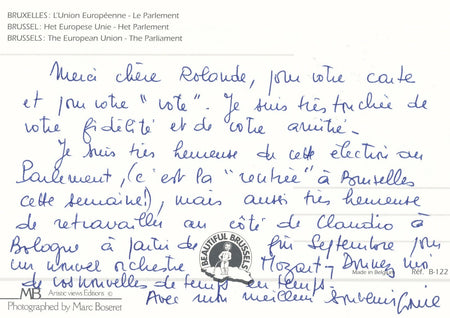 BRUXELLES: L'Union Européenne - Le Parlement
BRUSSEL: Het Europese Unie - Het Parlement
BRUSSELS: The European Union - The Parliament
Merci chère Rolande, pour votre carte
et pour votre "vote". Je suis très touchée de
votre fidélité et de votre amitié.
Je suis très heureuse de cette élection au
Parlement, (c'est la "rentrée" à Bruxelles
cette semaine!), mais aussi très heureuse
de retravailler au côté de Claudio à
Bologne à partir de fin Septembre pour
un nouvel orchestre Mozart - Donnez moi
de vos nouvelles de temps en temps.
Avec mon meilleur souvenir
BEAUTIFUL BRUSSELS
Made in Belgium
Ref. B-122
MB Artistic views Editions ©
Photographed by Marc Boseret